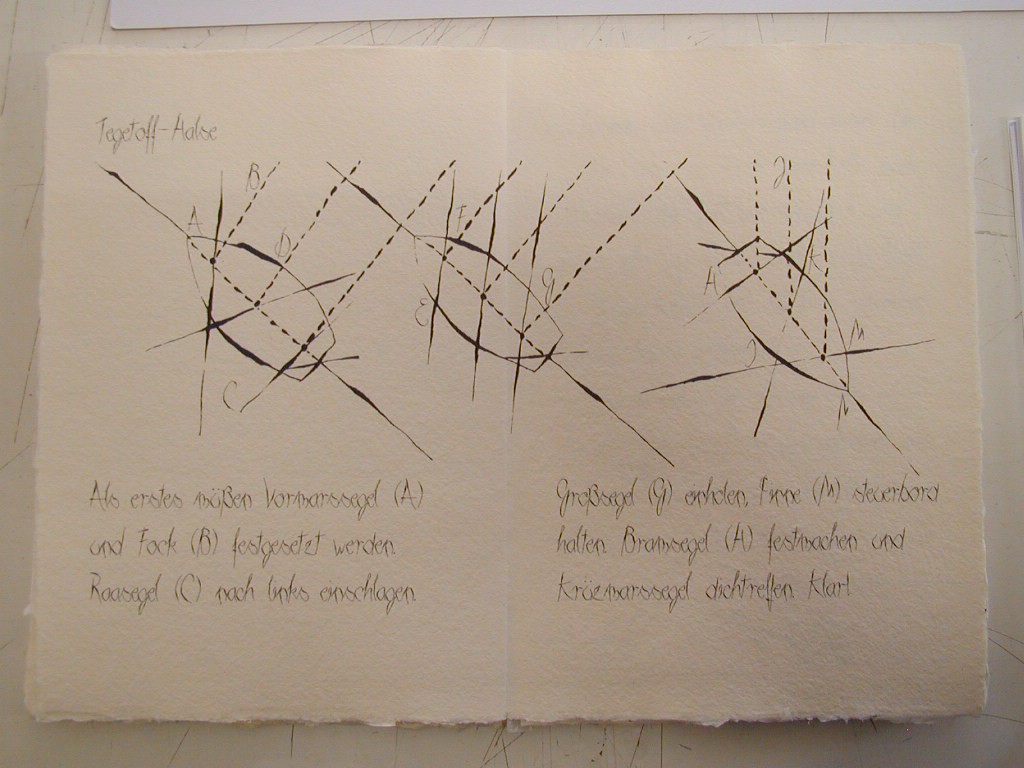 Tegetoff-Halse
A
B
D
C
F
E
G
J
H
K
J
M
N
Als erstes müßen Vormarssegel (A)
und Fock (B) festgesetzt werden.
Raasegel (C) nach links einschlagen.
Großsegel (G) einholen, Finne (M) steuerbord
halten. Bramsegel (H) festmachen und
Kreuzmarssegel dichtreffen. Klar!